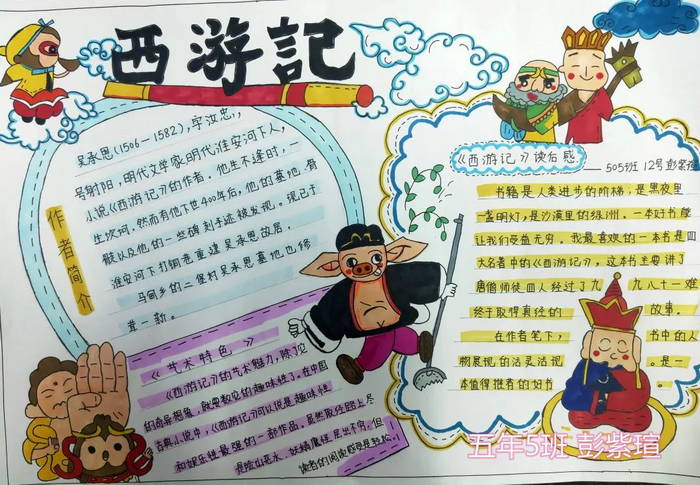 西游記
作者简介
吴承恩(1506—1582),字汝忠,
号射阳,明代文学家明代淮安河下人,
小说《西游记》的作者。他生不逢时,一
生坎坷。然而有他下世400年后,他的墓地,骨
骸以及他的一些碑刻手迹被发现。现已于
淮安河下打铜巷重建吴承恩故居。
马甸乡的二堡村吴承恩墓地也修
葺一新。
《艺术特色》
《西游记》的艺术魅力,除了它
的奇异想象,就要数它的趣味性了。在中国
古典小说中,《西游记》可以说是趣味性
和娱乐性最强的一部作品。虽然取经路上尽
是险山恶水、妖精魔怪层出不穷,但
读者的阅读感受是轻松,
《西游记》读后感
——505班 12号彭紫瑄
书籍是人类进步的阶梯,是黑夜里
一盏明灯,是沙漠里的绿洲。一本好书能
让我们受益无穷。我最喜欢的一本书是四
大名者中的《西游记》,这本书主要讲了
唐僧师徒四人经过了九九八十一难
终于取得真经的故事。
在作者笔下,书中的人
物展现的活灵活现。是一
本值得推者的好书
五年5班 彭紫瑄